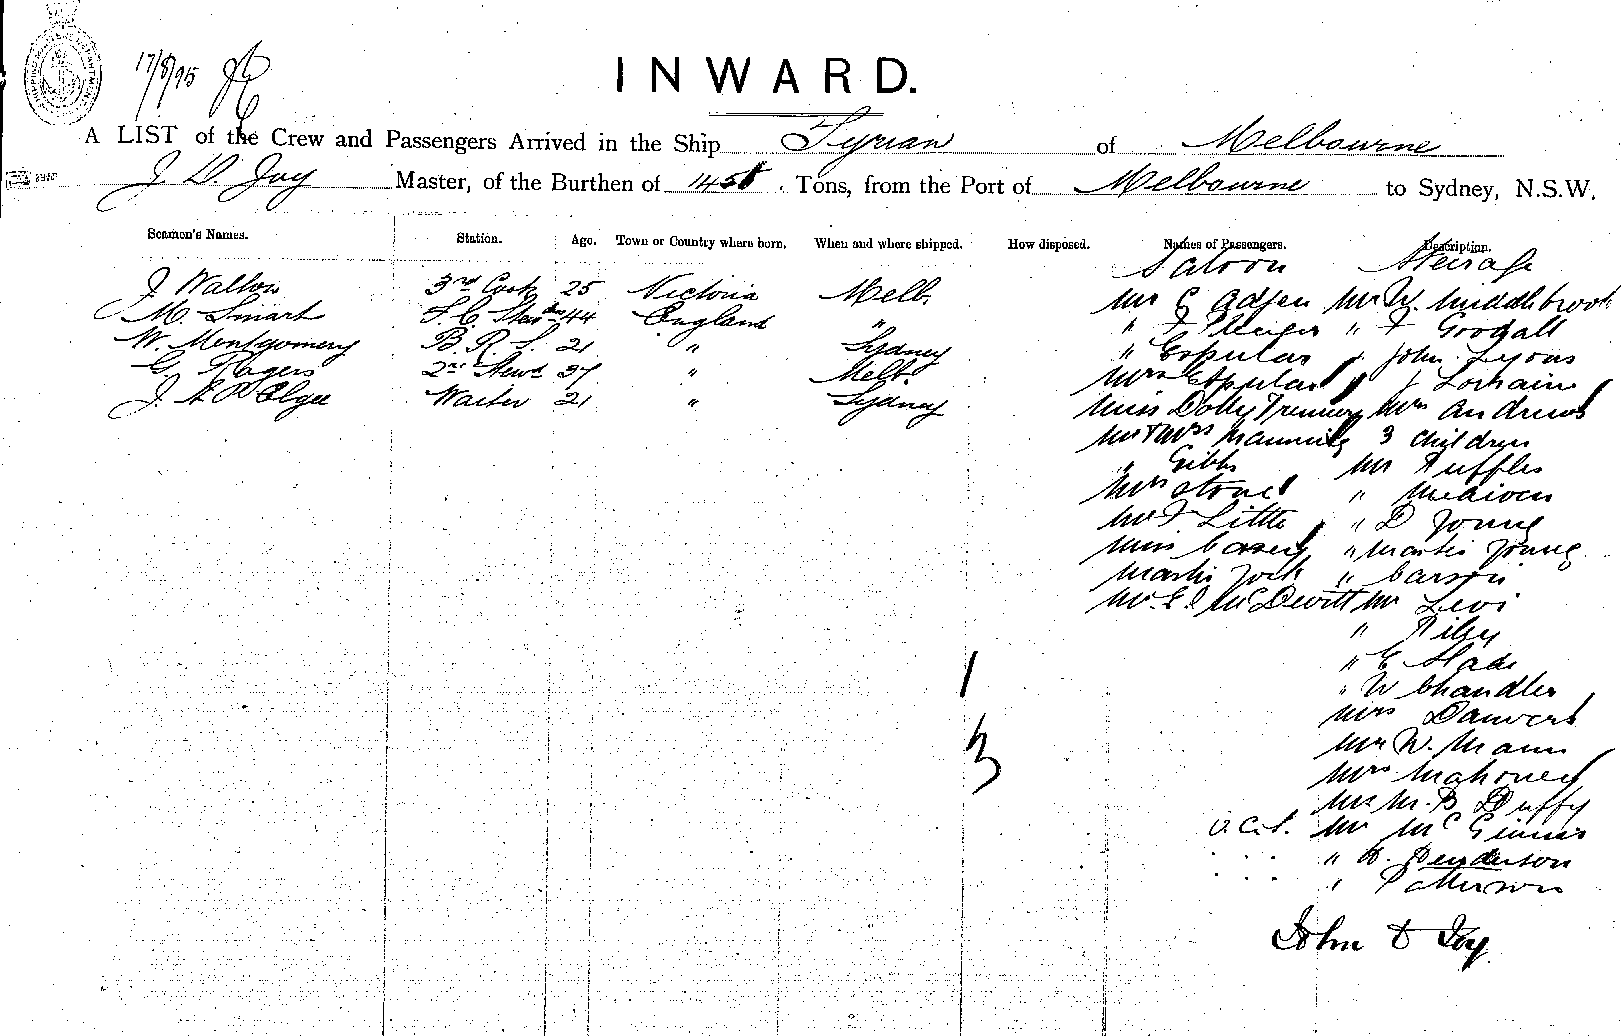 17/8/95
INWARD.
A LIST of the Crew and Passengers Arrived in the Ship Tyrian of Melbourne
J. D. Joy Master, of the Burthen of 1455 Tons, from the Port of Melbourne to Sydney, N.S.W.
Seamen's Names. Station. Age. Town or Country where born. When and where shipped. How disposed. Names of Passengers. Description.
Saloon Steerage
J Walton 3rd Cook 25 Victoria Melb.
Mr G Mr W. Middlebrook
M. Smart F. C. Stewdess 44 England "
" " F Goodall
W. Montgomery B. R. S. 21 " Sydney
" " John Lyons
G. Rogers 2nd Stewd 37 " Melb.
Mrs " J Lorhain
J. A. Waiter 21 " Sydney
Miss Dolly Mrs Andrews
Mr & Mrs Manning 3 Children
" Gibbs Mr Ruffles
Mrs Stone "
Mr F. Little " D Young
Miss Casey " Master Young
Master York " Carson
Mr. E. J McDevitt Mr Levi
" Riley
" E Slade
" W Chandler
Mrs Danvers
1
Mr W. Mann
3
Mrs Mahoney
Mr M. B Duffy
Mr McGinnis
" Henderson
" Patterson
John D Joy